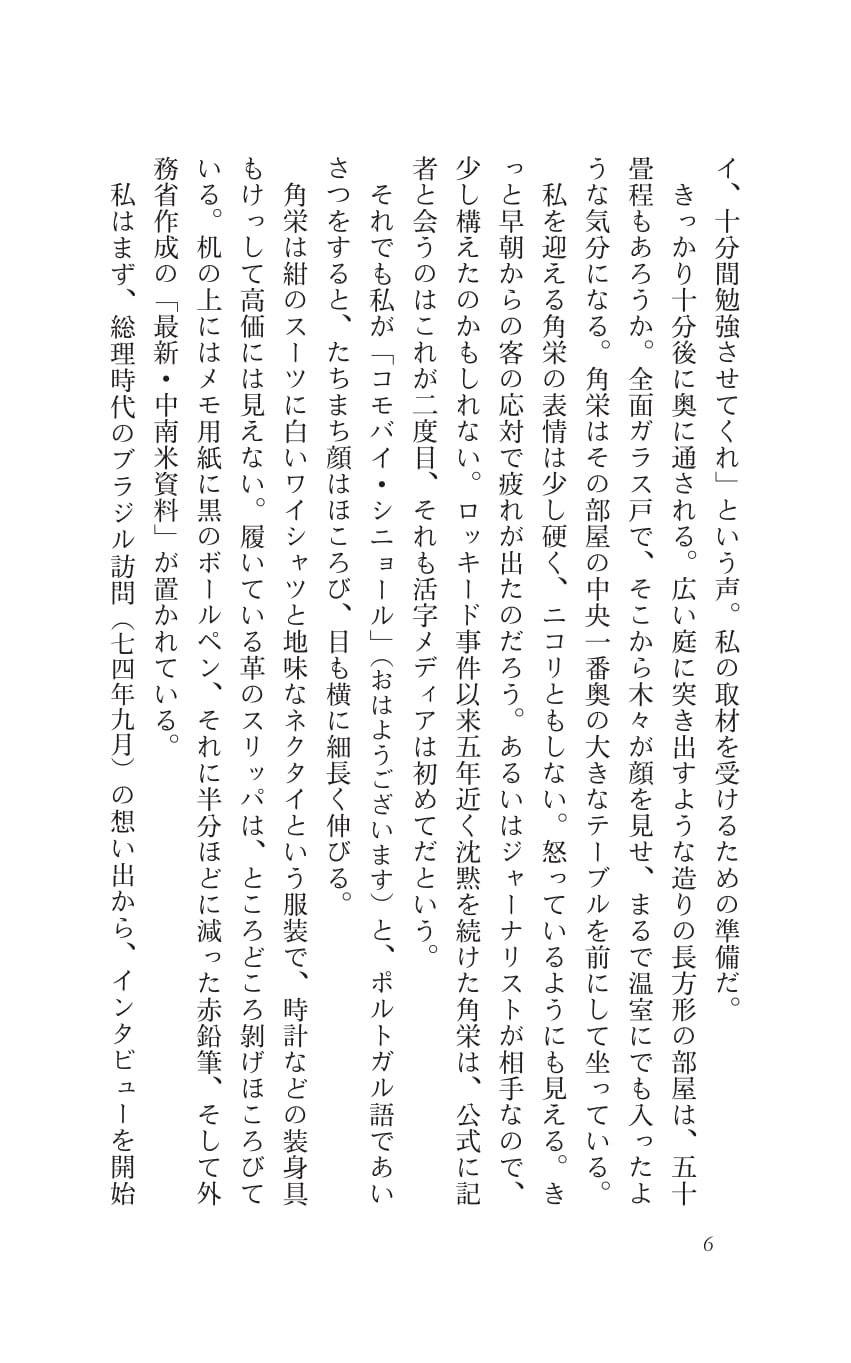 イ、十分間勉強させてくれ」という声。私の取材を受けるための準備だ。
きっかり十分後に奥に通される。広い庭に突き出すような造りの長方形の部屋は、五十
畳程もあろうか。全面ガラス戸で、そこから木々が顔を見せ、まるで温室にでも入ったよ
うな気分になる。角栄はその部屋の中央一番奥の大きなテーブルを前にして坐っている。
私を迎える角栄の表情は少し硬く、ニコリともしない。怒っているようにも見える。き
っと早朝からの客の応対で疲れが出たのだろう。あるいはジャーナリストが相手なので、
少し構えたのかもしれない。ロッキード事件以来五年近く沈黙を続けた角栄は、公式に記
者と会うのはこれが二度目、それも活字メディアは初めてだという。
それでも私が「コモバイ・シニョール」（おはようございます）と、ポルトガル語であい
さつをすると、たちまち顔はほころび、目も横に細長く伸びる。
角栄は紺のスーツに白いワイシャツと地味なネクタイという服装で、時計などの装身具
もけっして高価には見えない。履いている革のスリッパは、ところどころ剝げほころびて
いる。机の上にはメモ用紙に黒のボールペン、それに半分ほどに減った赤鉛筆、そして外
務省作成の「最新・中南米資料」が置かれている。
私はまず、総理時代のブラジル訪問（七四年九月）の想い出から、インタビューを開始
6